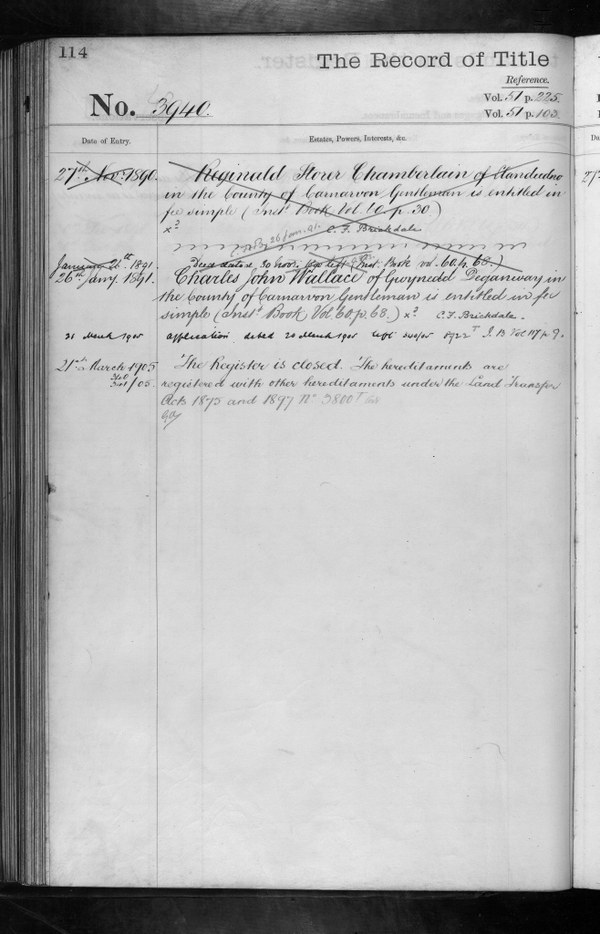 114
The Record of Title
Reference.
No. 3940.
Vol. 51 p. 225.
Vol. 51 p. 103
Date of Entry.
Estates, Powers, Interests, &c.
27th Nov: 1890.
Reginald Storer Chamberlain of Llandudno
in the County of Carnarvon Gentleman is entitled in
fee simple (Inst. Book Vol. 60 p. 30)
x?
C. F. Brickdale
January 26th 1891.
Deed dated 30 Nov: (Inst. Book vol. 60 p. 68.)
26th Jany. 1891.
Charles John Wallace of Gwynedd Deganwy in
the County of Carnarvon Gentleman is entitled in fee
simple (Inst. Book Vol. 60 p. 68.) x? C. F. Brickdale.
21 March 1905
application dated 20 March 1905 left 8922 I. B. Vol 117 p 9.
21st March 1905
The Register is closed. The hereditaments are
registered with other hereditaments under the Land Transfer
Acts 1875 and 1897 No. 3800